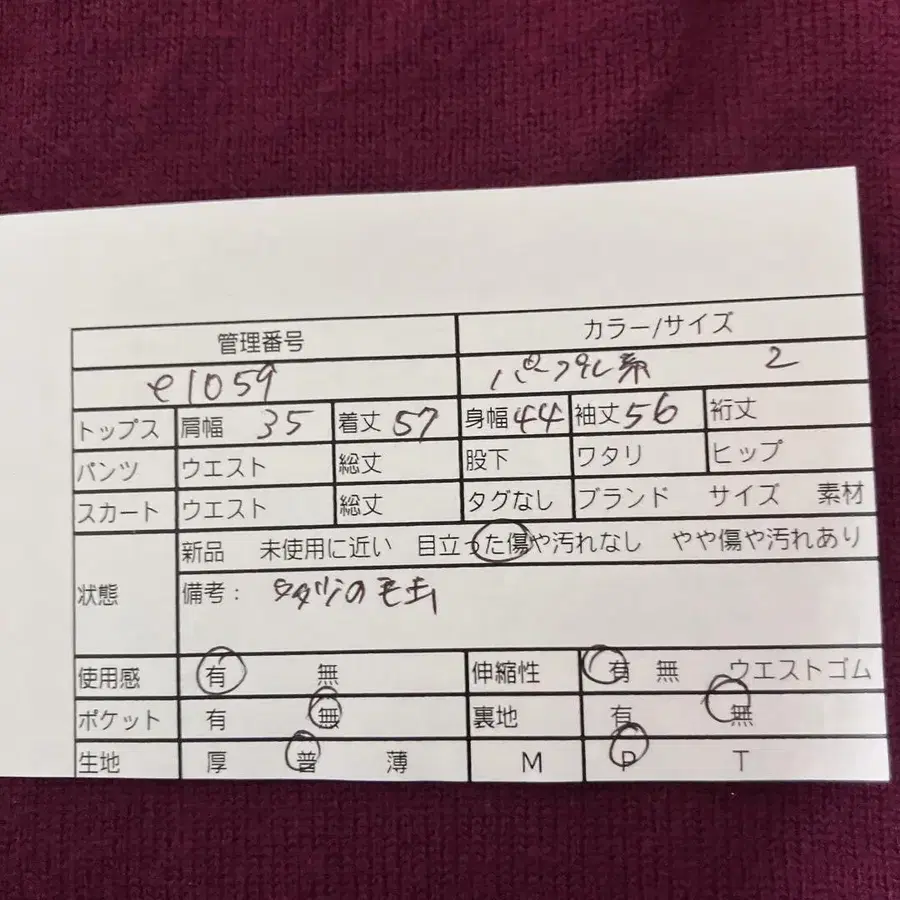 管理番号 カラー/サイズ
e1059 パープル系 2
トップス 肩幅 35 着丈 57 身幅 44 袖丈 56 裄丈
パンツ ウエスト 総丈 股下 ワタリ ヒップ
スカート ウエスト 総丈 タグなし ブランド サイズ 素材
新品 未使用に近い 目立った傷や汚れなし やや傷や汚れあり
状態 備考:
使用感 有 無 伸縮性 有 無 ウエストゴム
ポケット 有 無 裏地 有 無
生地 厚 普 薄 M P T